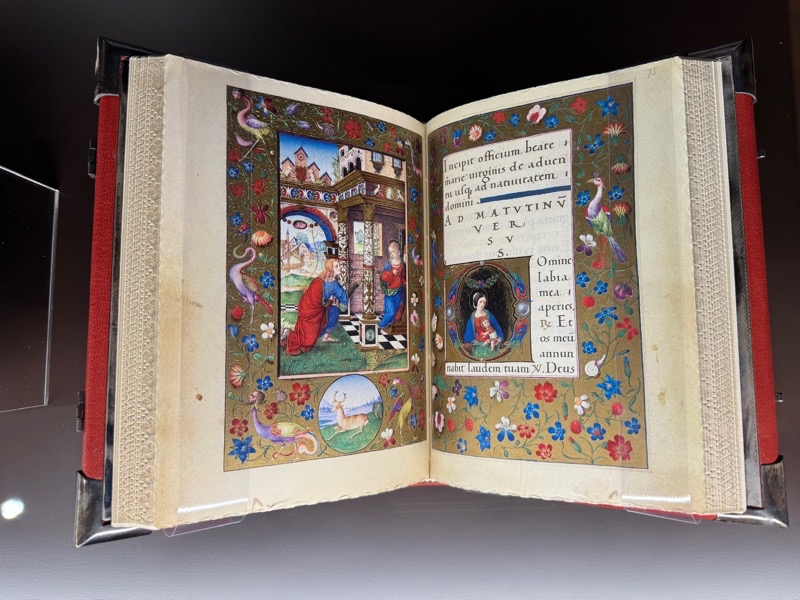 15
Incipit officium beate
marie virginis de adven
tu usq; ad nativitatem
domini
AD MATVTINŪ
VER
SV
S.
Domine
labia
mea
aperies,
℟. Et
os meū
annun
nabit laudem tuam ℣. Deus